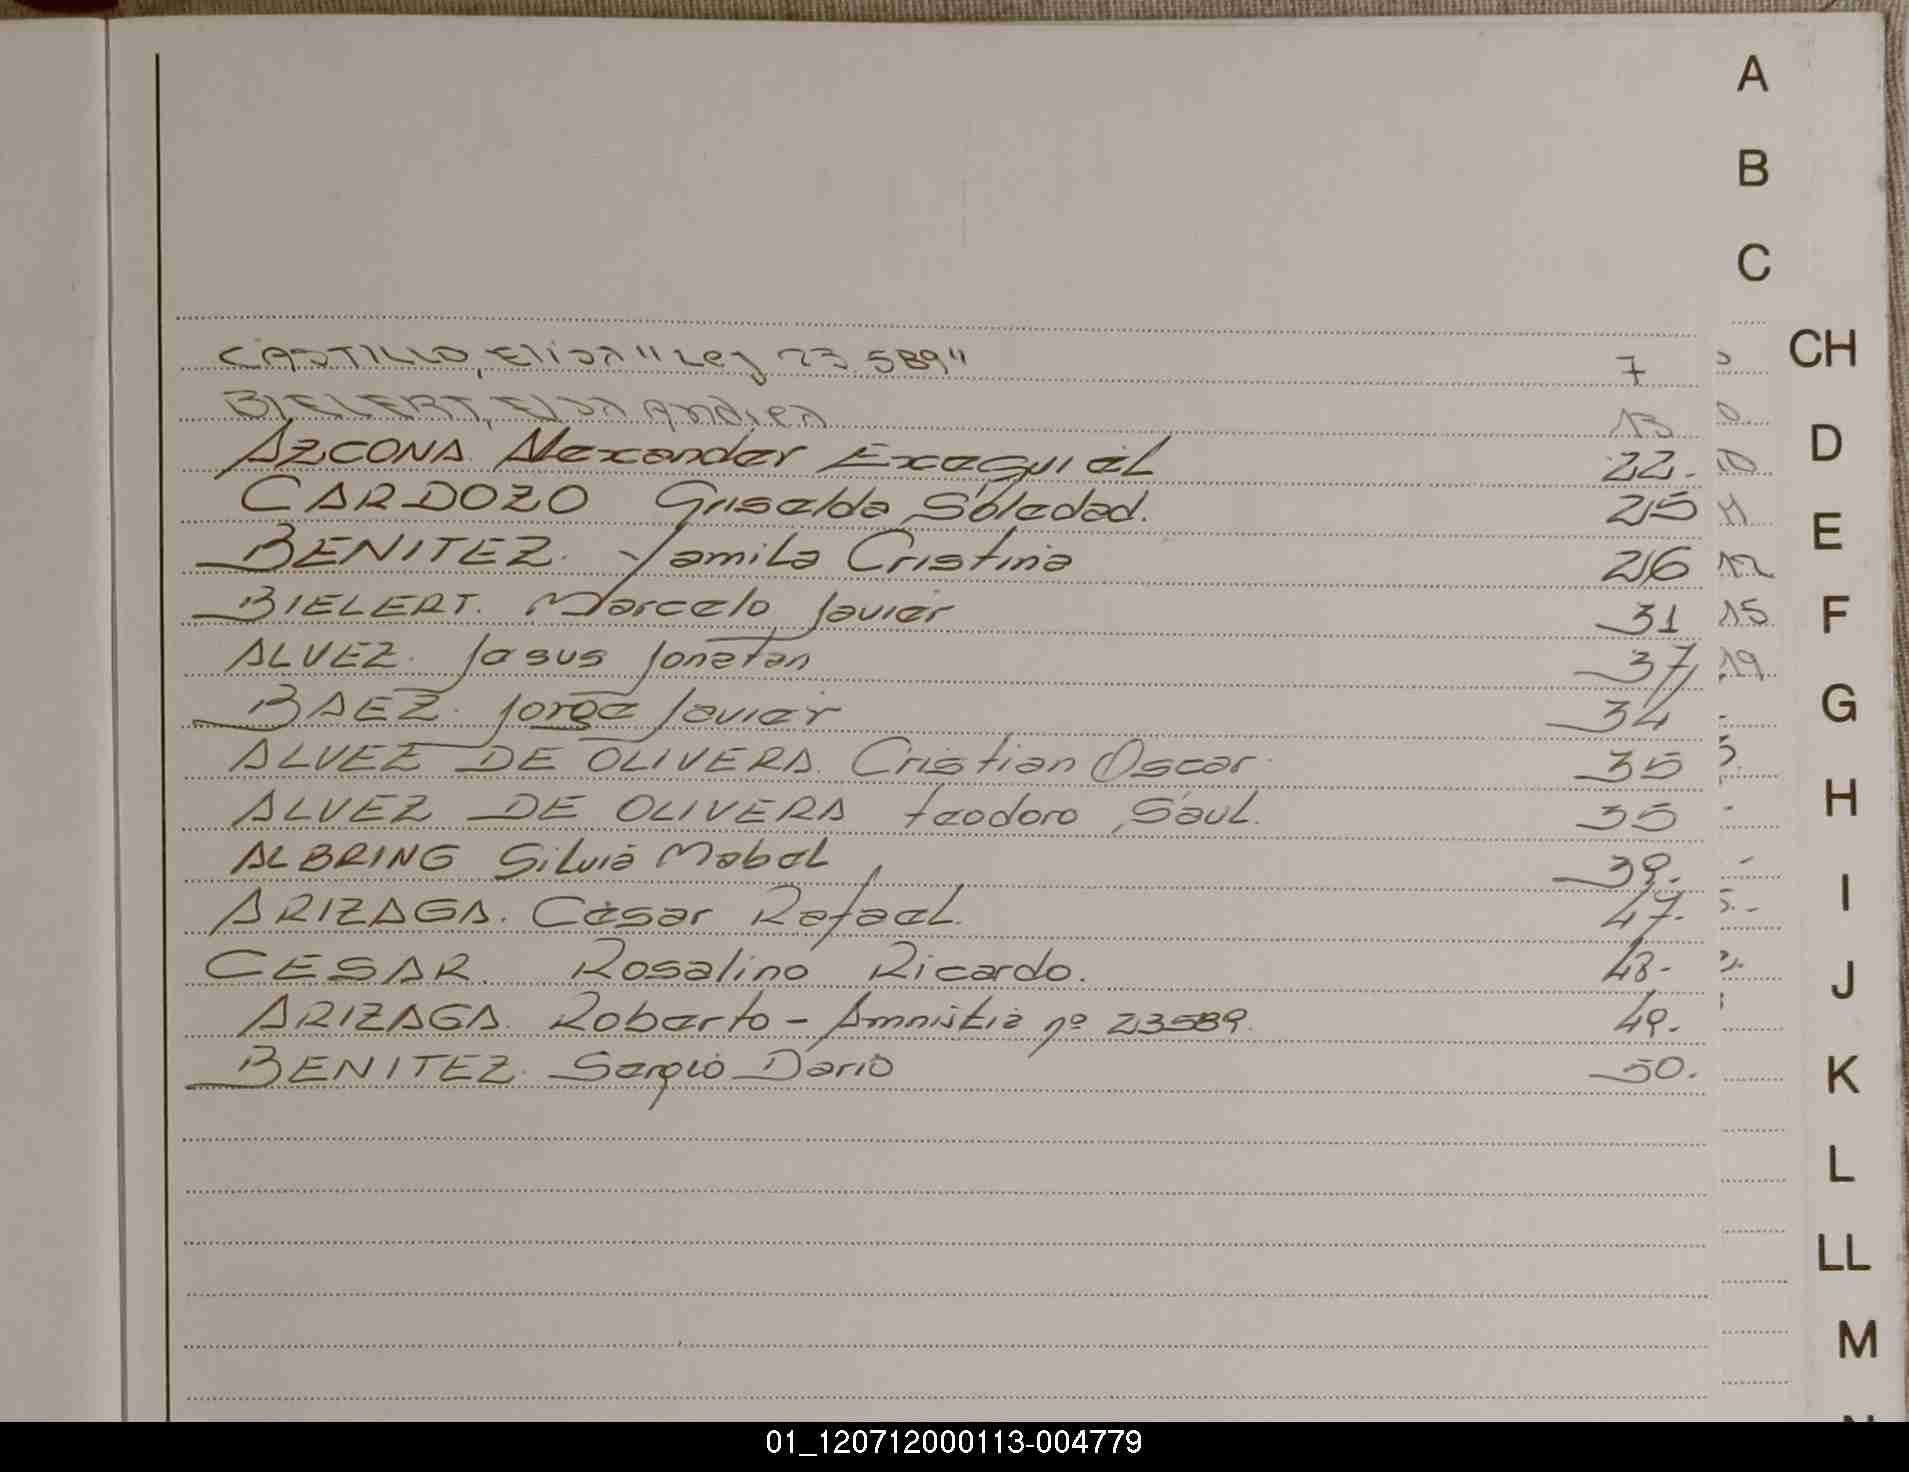 A
B
C
CH
D
E
F
G
H
I
J
K
L
LL
M
CASTILLO, Elisa "Ley 23.589" 7
BIELERT, Elsa Andrea 13
AZCONA. Alexander Exequiel 22.
CARDOZO Griselda Soledad. 25
BENITEZ. Yamila Cristina 26
BIELERT. Marcelo Javier 31
ALVEZ. Jesus Jonatan 37
BAEZ. Jorge Javier 34
ALVEZ DE OLIVERA. Cristian Oscar. 35
ALVEZ DE OLIVERA teodoro Saul. 35
ALBRING Silvia Mabel 39.
ARIZAGA. César Rafael. 47.
CESAR. Rosalino Ricardo. 48.
ARIZAGA. Roberto - Amnistia nº 23589. 49.
BENITEZ. Sergio Dario 50.
10
11
12
15
19
01_120712000113-004779